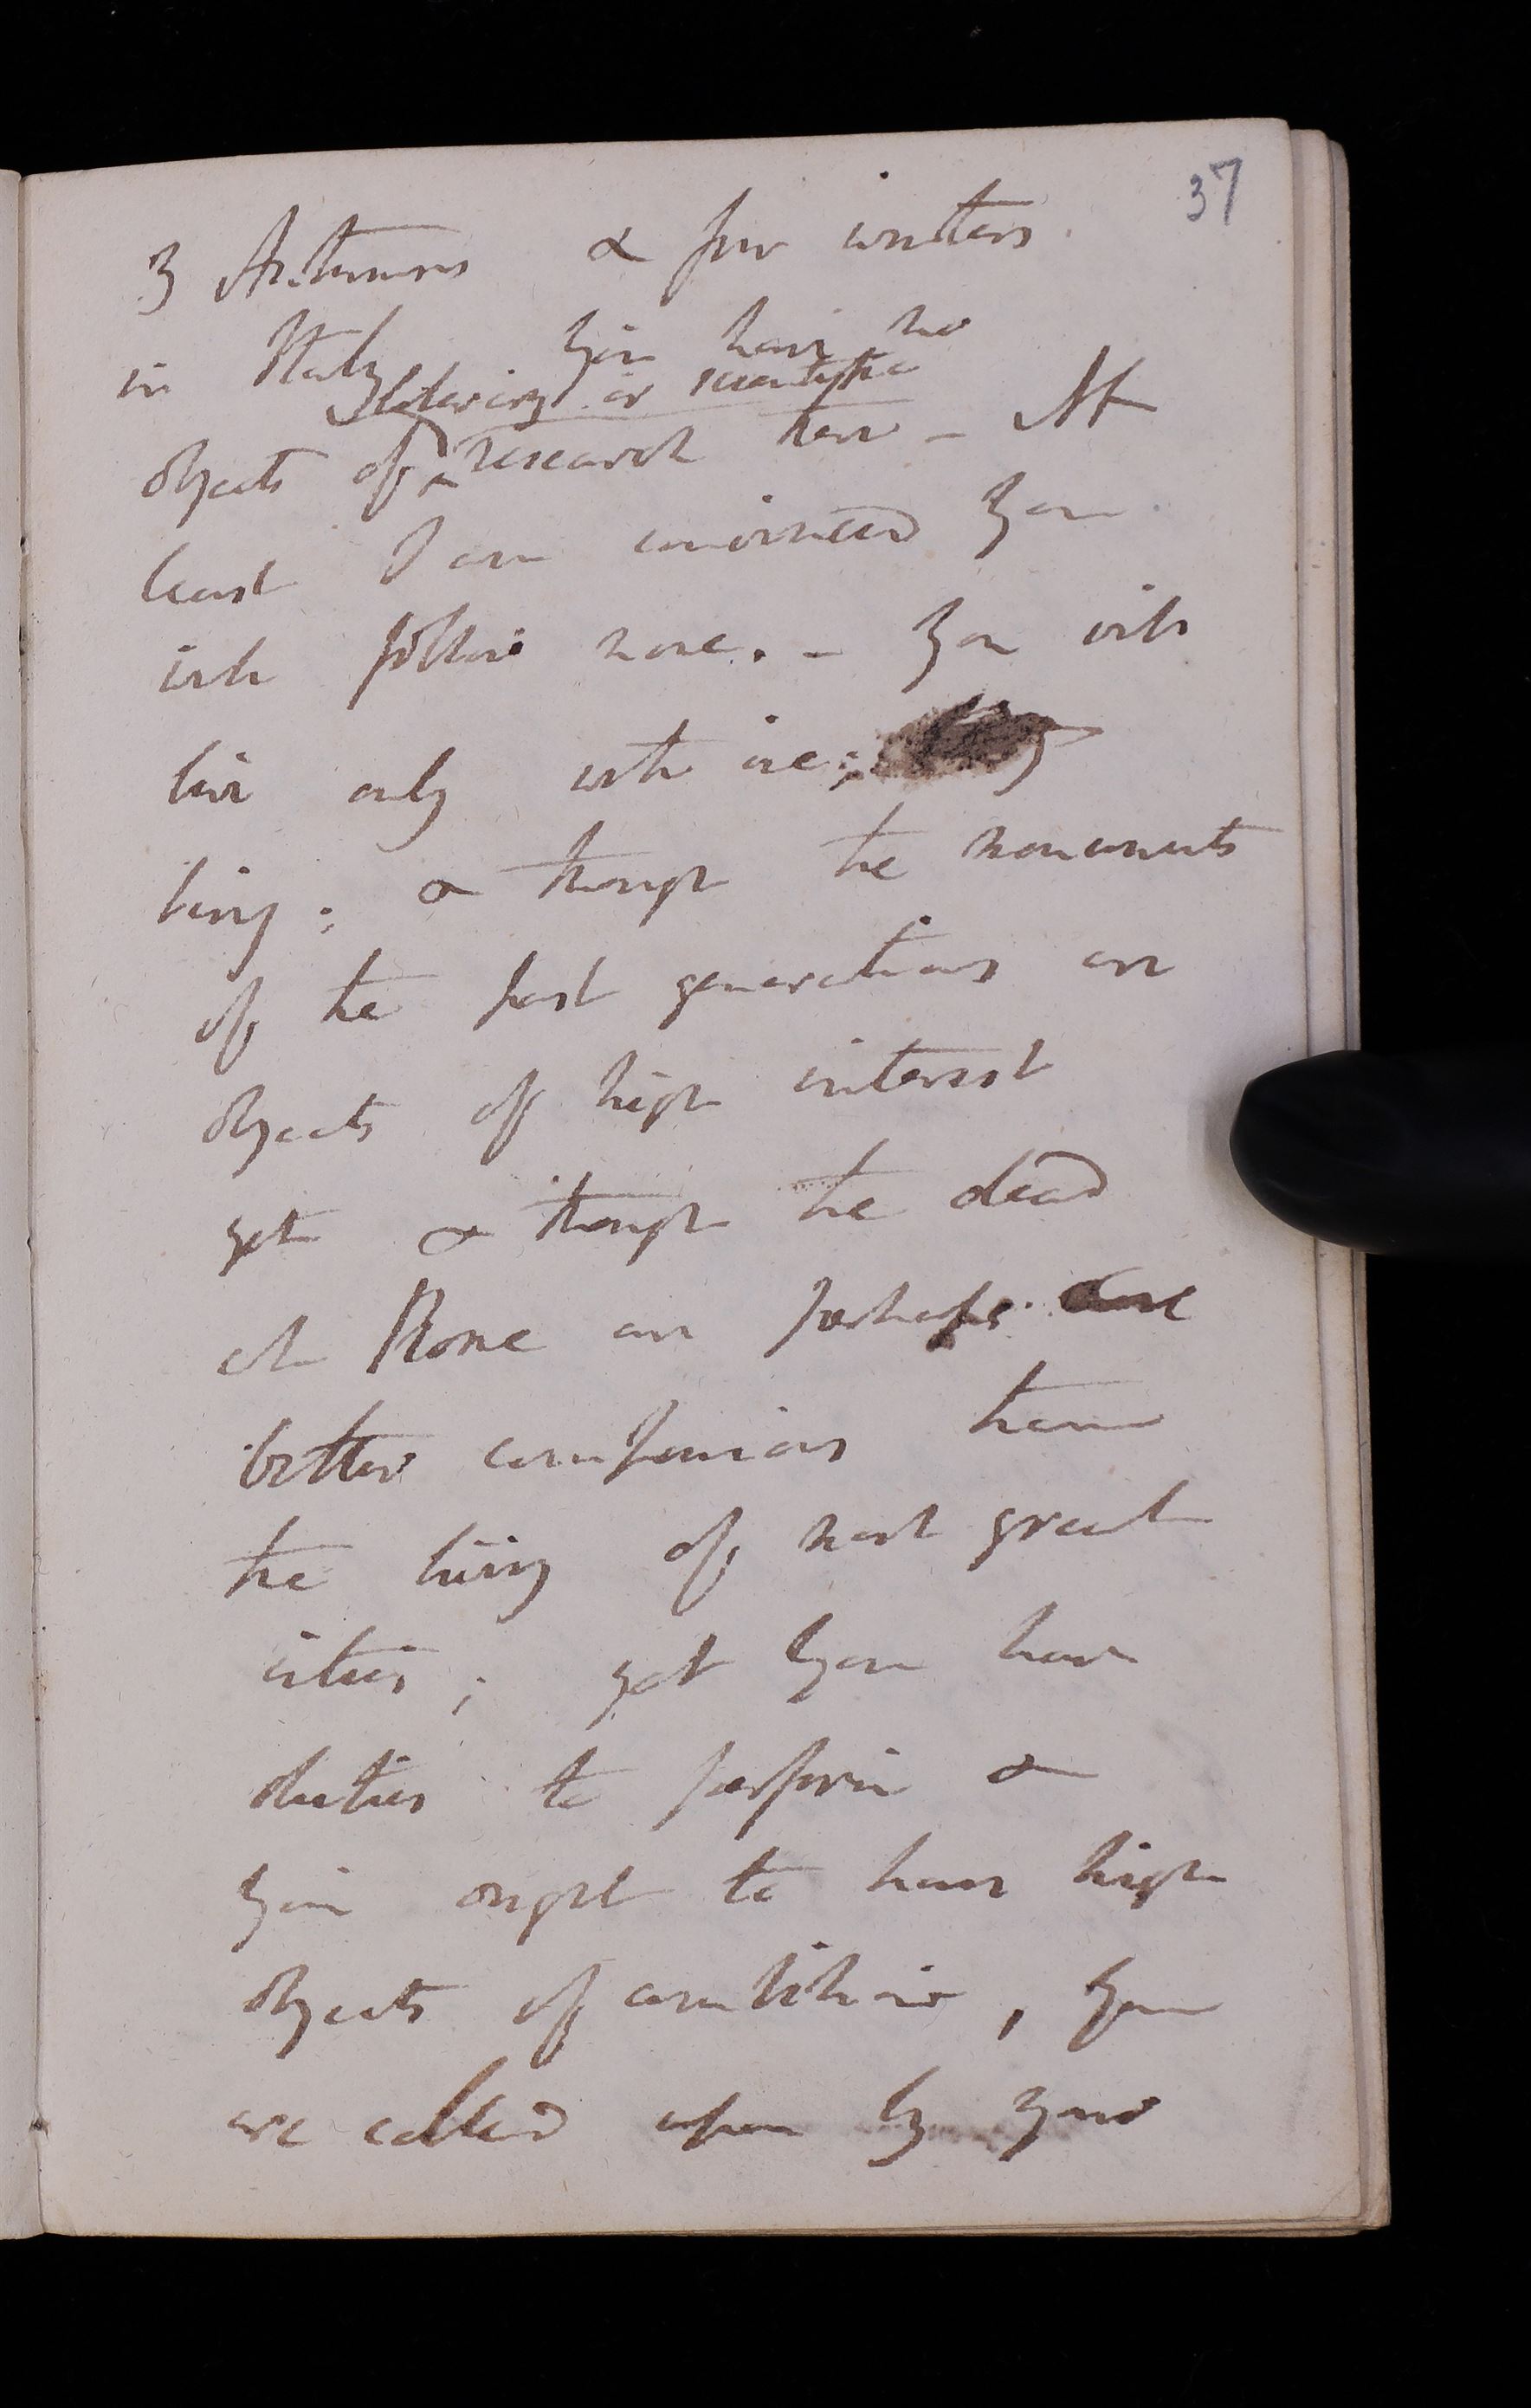 37
3 Autumns & four winters
in Italy You have no
literary or scientific
objects of research here – At
least I am convinced you
will follow none. – You will
live only with the
living; & though the monuments
of the past generations are
objects of high interest
yet & though the dead
at Rome are perhaps
better companions than
the living of most great
cities; yet you have
duties to perform &
you ought to have high
objects of ambition, you
are called upon by your